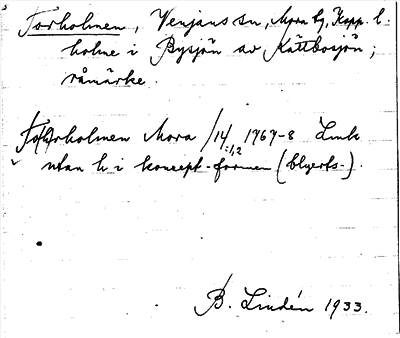 Torholmen, Venjans sn, Mora tg, Kopp. l.
holme i Bysjön av Kättbosjön;
råmärke.
Torholmen Mora /14:1,2 1767-8 Link
utan h i koncept-formen (blyerts-).
B. Lindén 1933.